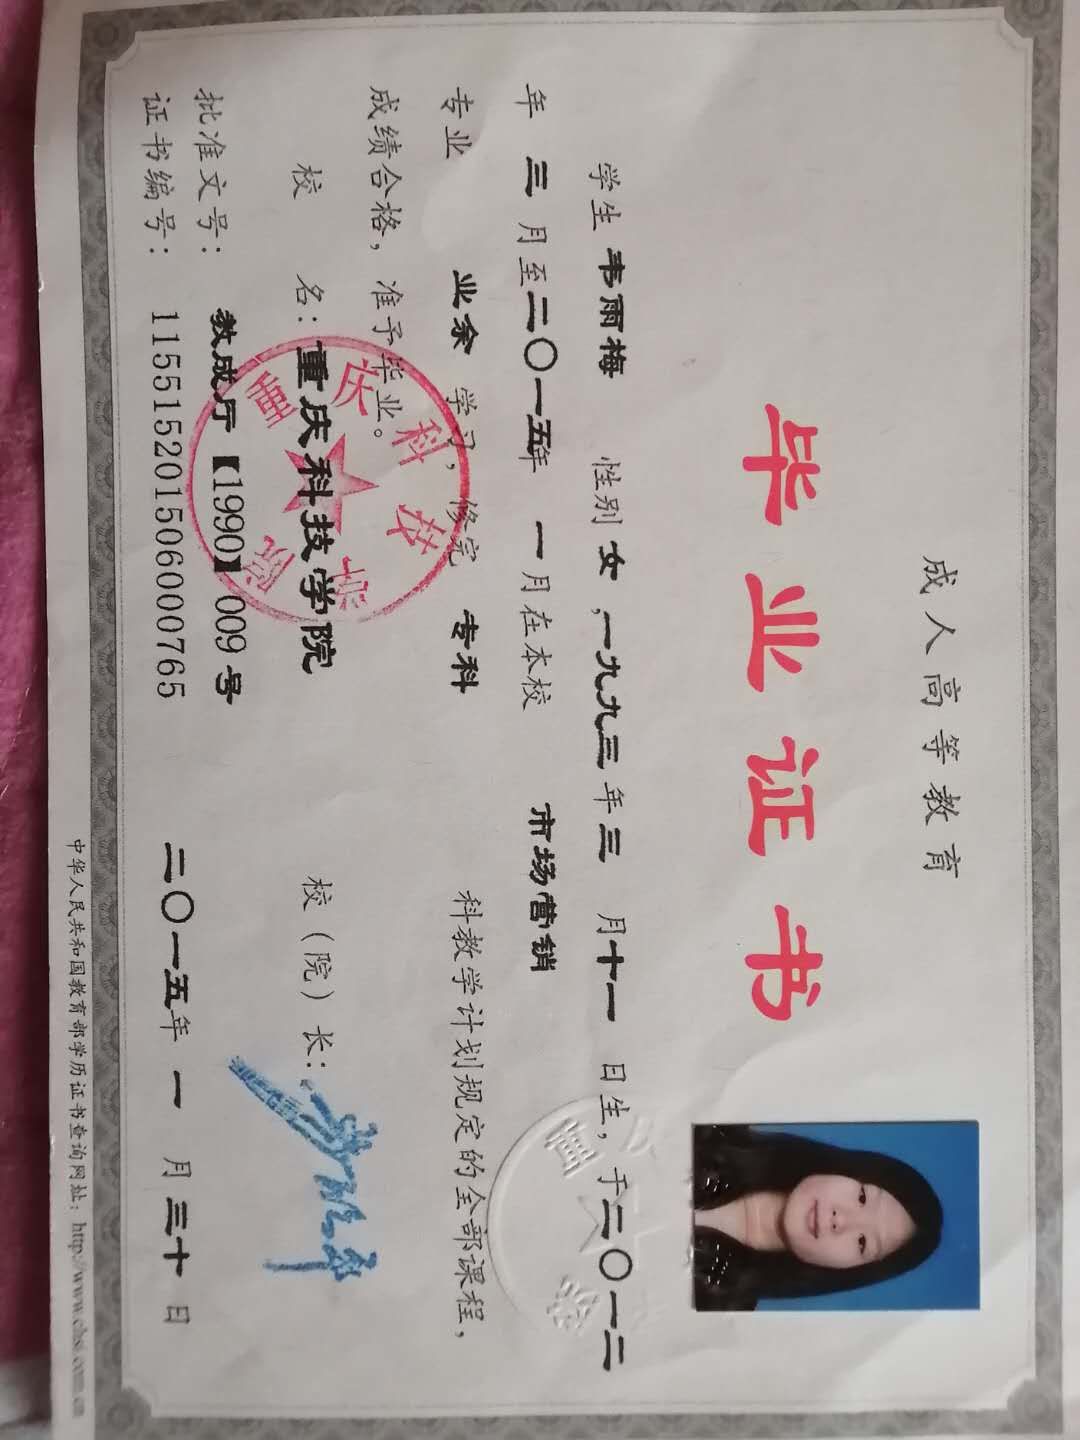 成人高等教育
毕业证书
学生 韦雨梅 性别 女，一九九三年三月十一日生，于二〇一二
年三月至二〇一五年一月在本校 市场营销
专业 业余 学习，修完 专科 科教学计划规定的全部课程，
成绩合格，准予毕业。
校 名：重庆科技学院 校（院）长：
批准文号：教成厅【1990】009号
证书编号：115515201506000765 二〇一五年一月三十日
中华人民共和国教育部学历证书查询网址：http://www.chsi.com.cn
重庆科技学院